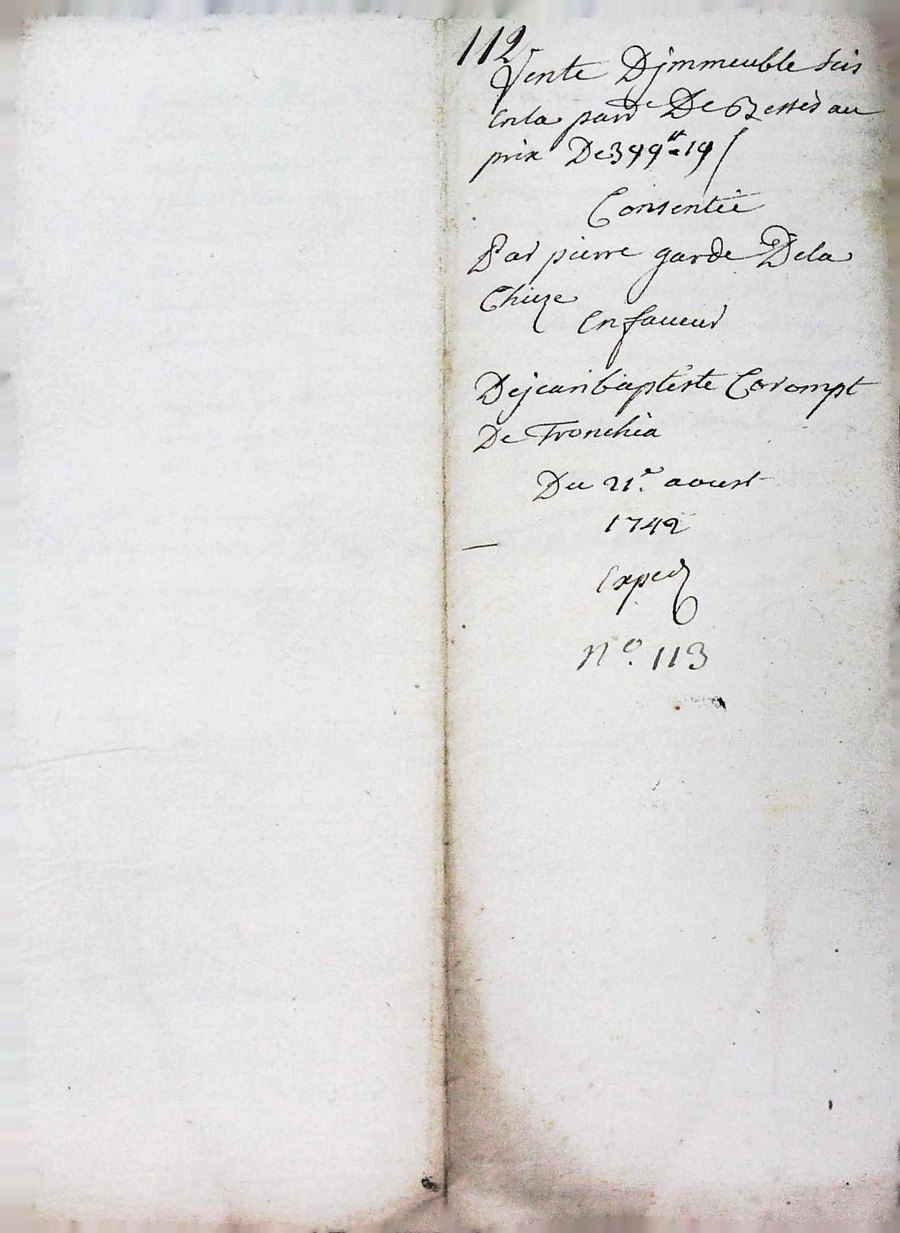 112
Vente Djmmeuble Sis
en la par^de De Besses au
prix De 399^tt 19 s
Consentie
Par pierre garde Dela
Chieze
en faveur
De jean baptiste Corompt
De Tronchia
Du 21^e aoust
1742
exped
N^o. 113